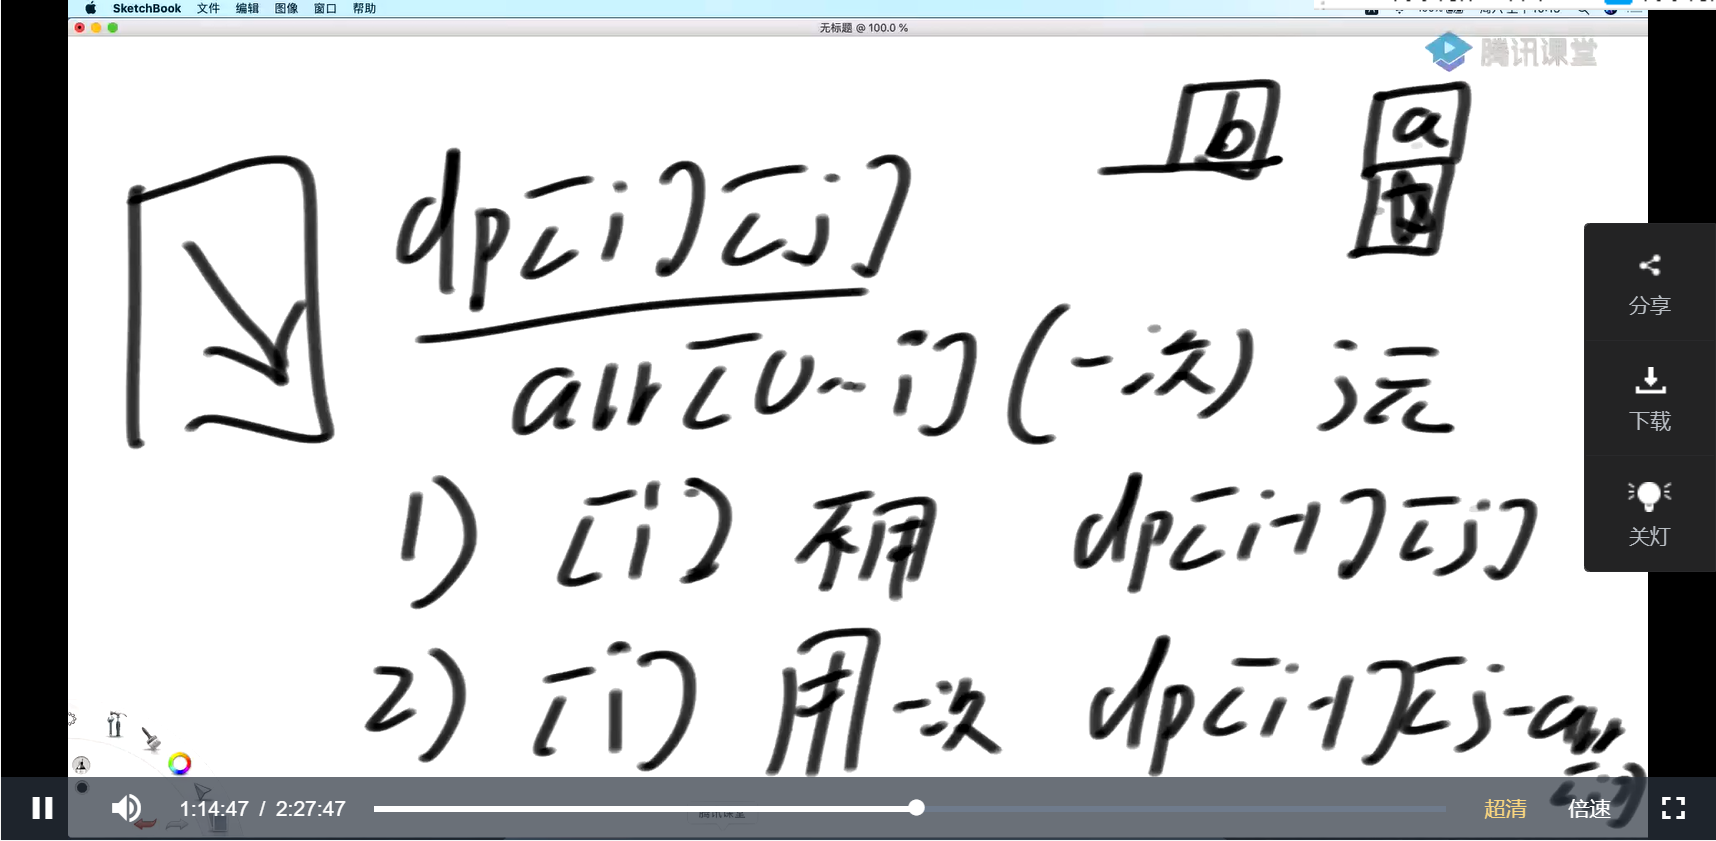 SketchBook 文件 编辑 图像 窗口 帮助
无标题 @ 100.0 %
腾讯课堂
b a
dp[i][j]
arr[0~i] (一次) j元
1) [i] 不用 dp[i-1][j]
2) [i] 用一次 dp[i-1][j-arr
[i]]
分享
下载
关灯
1:14:47 / 2:27:47 超清 倍速
腾讯课堂